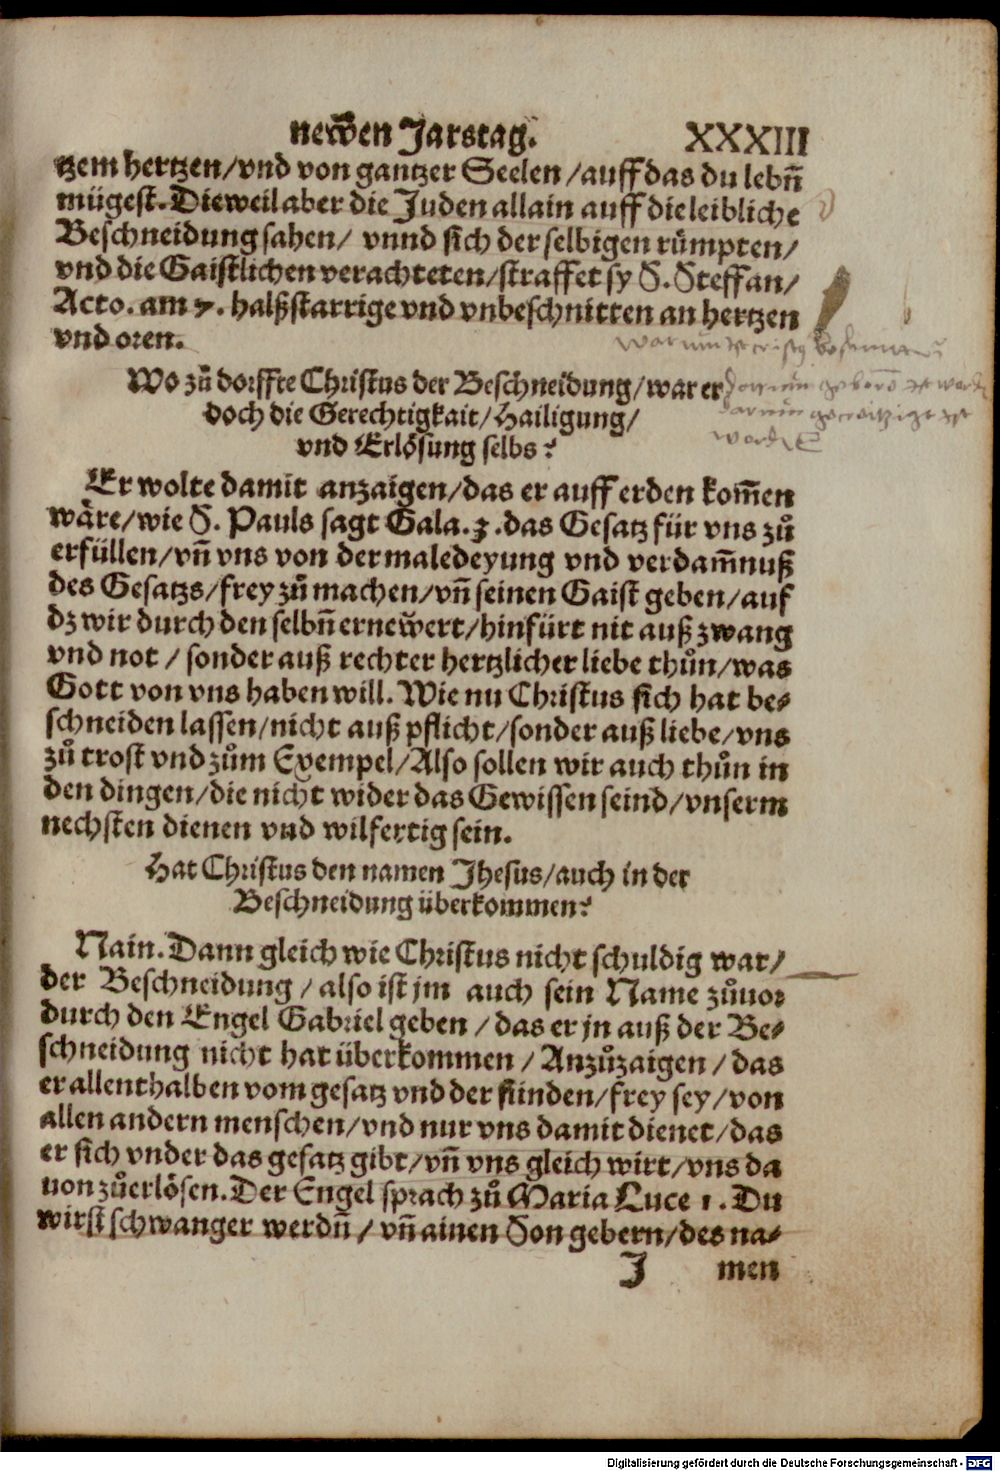 neẅen Jarstag. XXXIII
tzem hertzen/vnd von gantzer Seelen/auff das du lebn̄
mügest. Dieweil aber die Juden allain auff die leibliche
Beschneidung sahen/ vnnd sich der selbigen růmpten/
vnd die Gaistlichen verachteten/straffet sy S. Steffan/
Acto. am 7. halßstarrige vnd vnbeschnitten an hertzen
vnd oren.
Wo zů dorffte Christus der Beschneidung/war er
doch die Gerechtigkait/Hailigung/
vnd Erlösung selbs?
Er wolte damit anzaigen/das er auff erden kom̄en
wäre/wie S. Pauls sagt Gala. 3. das Gesatz für vns zů
erfüllen/vn̄ vns von der maledeyung vnd verdam̄nuß
des Gesatzs/frey zů machen/vn̄ seinen Gaist geben/auf
dz wir durch den selbn̄ erneẅert/hinfürt nit auß zwang
vnd not/sonder auß rechter hertzlicher liebe thůn/was
Gott von vns haben will. Wie nu Christus sich hat be⸗
schneiden lassen/nicht auß pflicht/sonder auß liebe/vns
zů trost vnd zům Exempel/Also sollen wir auch thůn in
den dingen/die nicht wider das Gewissen seind/vnserm
nechsten dienen vnd wilfertig sein.
Hat Christus den namen Jhesus/auch in der
Beschneidung überkommen?
Nain. Dann gleich wie Christus nicht schuldig war/
der Beschneidung/also ist jm auch sein Name zůuor
durch den Engel Gabriel geben/das er jn auß der Be⸗
schneidung nicht hat überkommen/Anzůzaigen/das
er allenthalben vom gesatz vnd der sünden/frey sey/von
allen andern menschen/vnd nur vns damit dienet/das
er sich vnder das gesatz gibt/vn̄ vns gleich wirt/vns da
uon zůerlösen. Der Engel sprach zů Maria Luce 1. Du
wirst schwanger werdn̄/vn̄ ainen Son gebern/des na⸗
J men
Digitalisierung gefördert durch die Deutsche Forschungsgemeinschaft - DFG